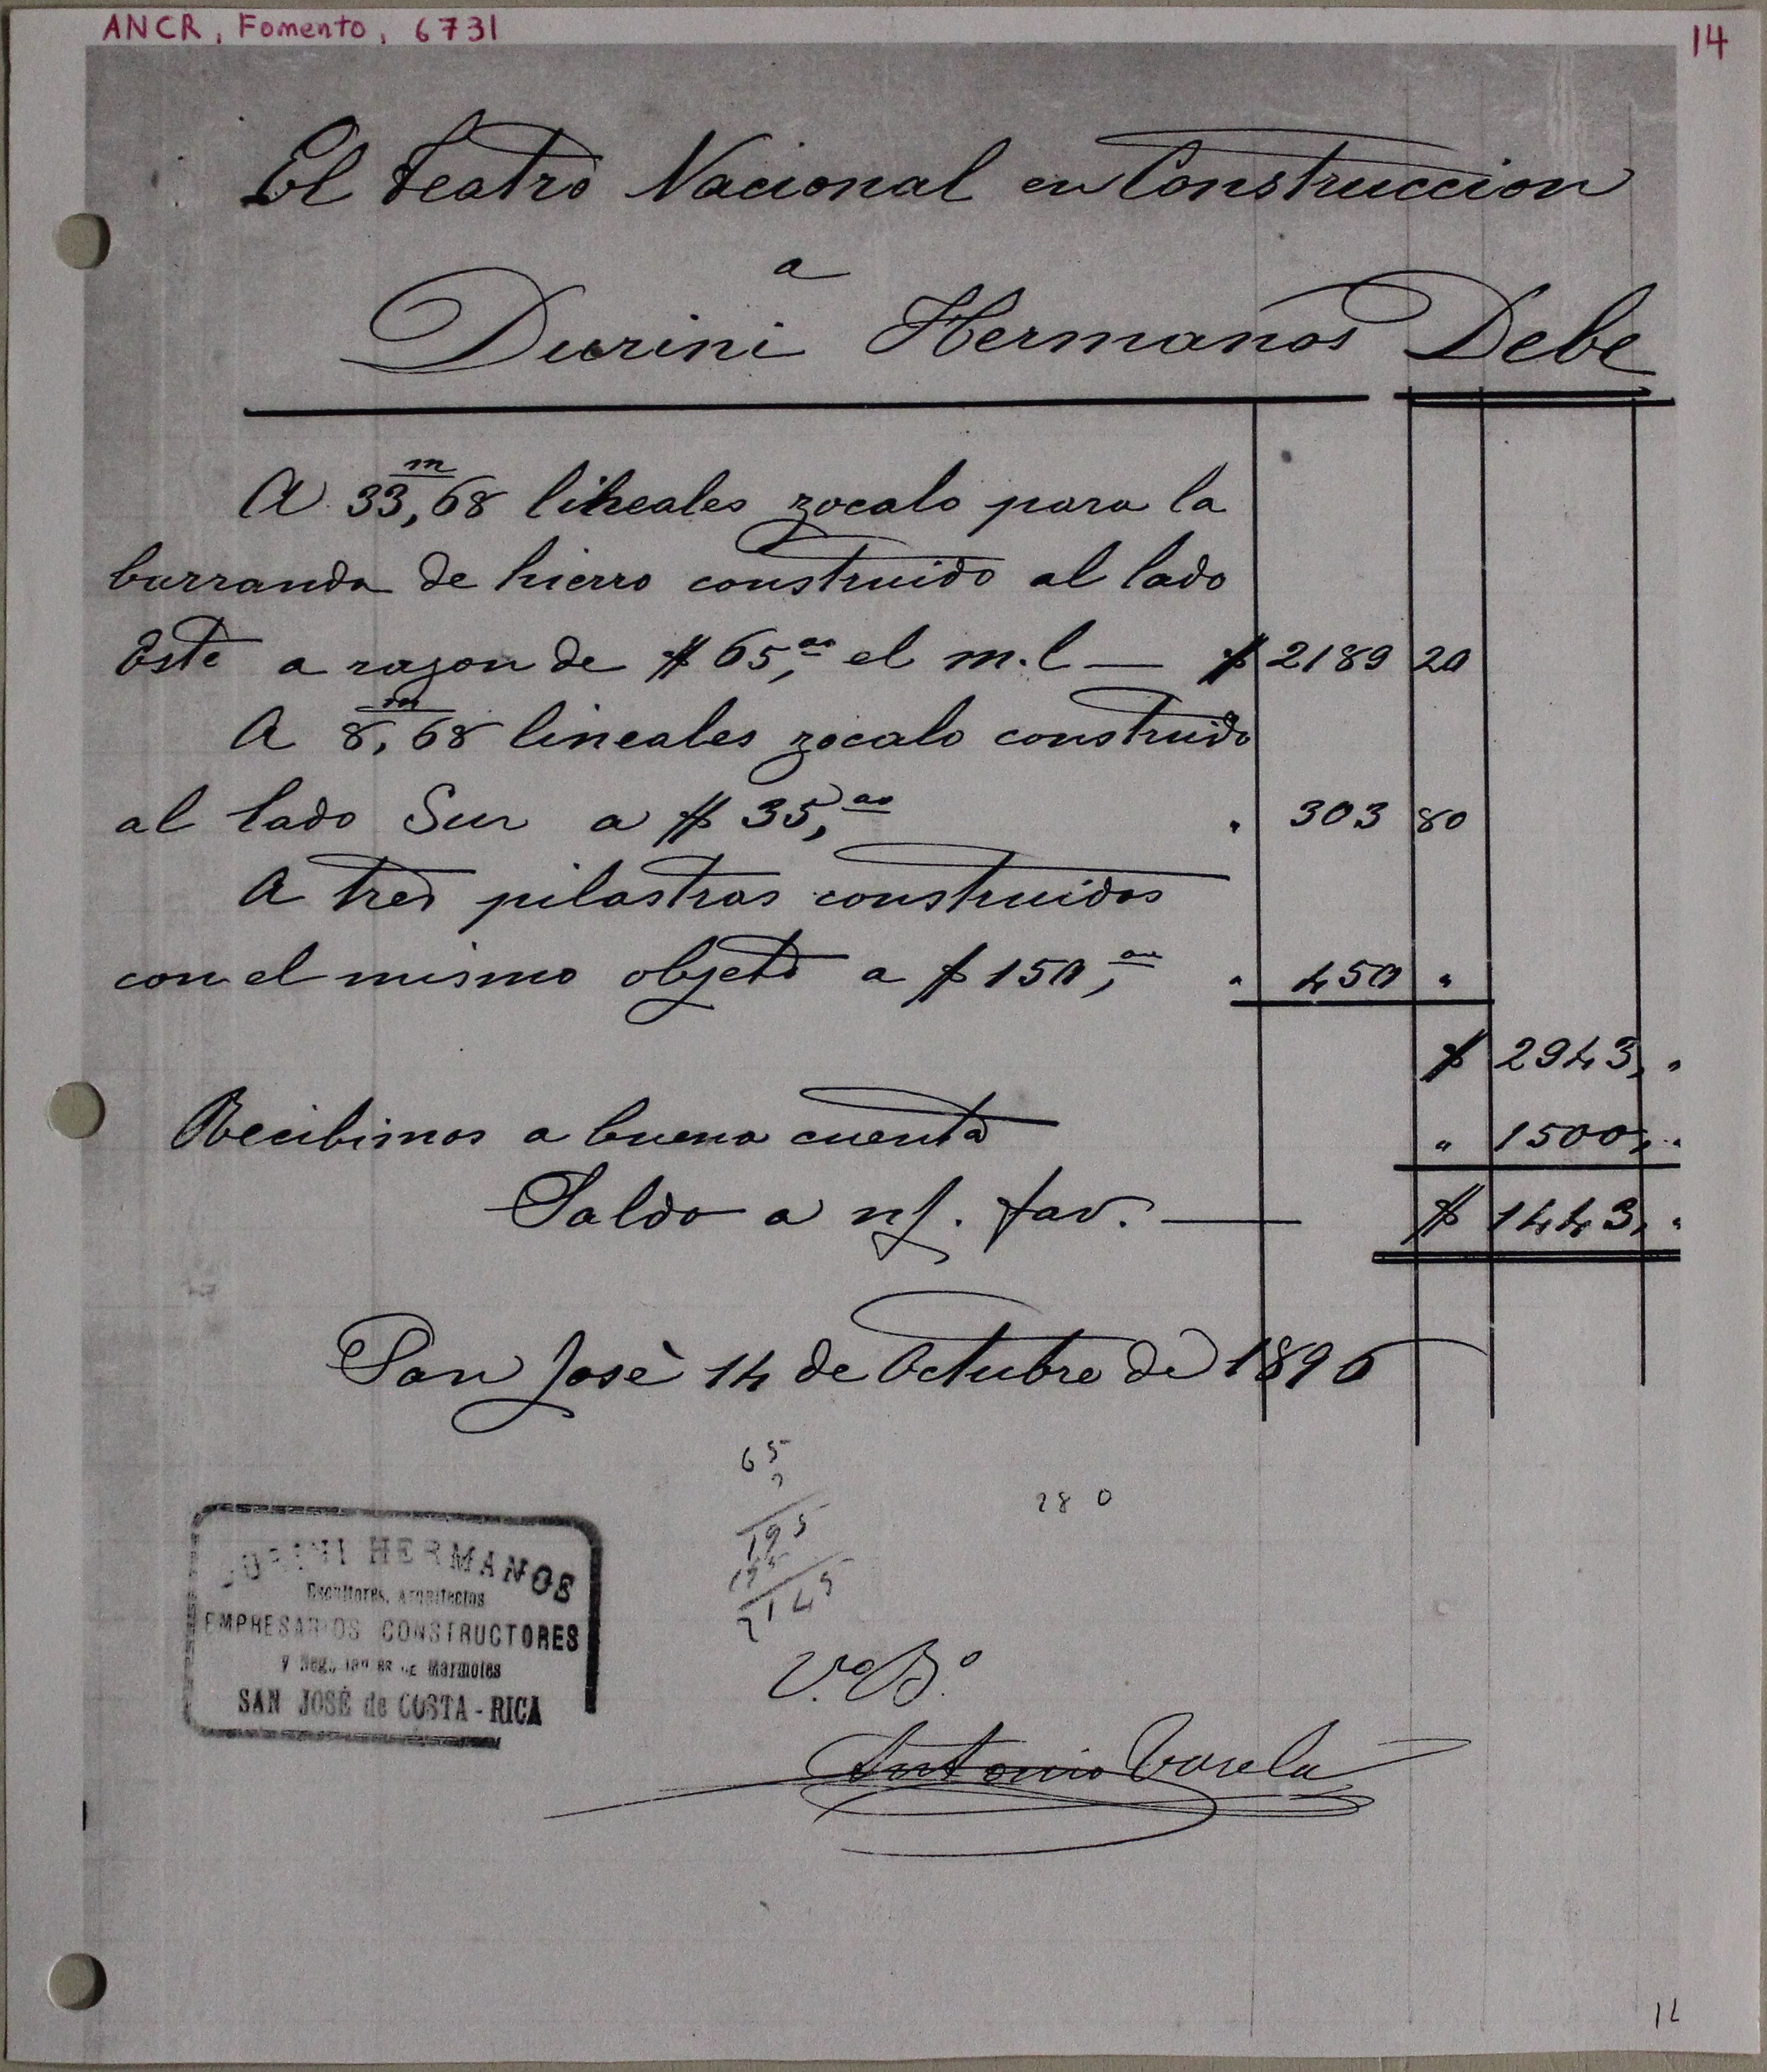 ANCR, Fomento, 6731
14
El Teatro Nacional en Construccion
a
Durini Hermanos Debe
A 33,68 m lineales zocalo para la
barranda de hierro construido al lado
Este a razon de $ 65,oo el m.l — $ 2189 20
A 8,68 m lineales zocalo construido
al lado Sur a $ 35,oo " 303 80
A tres pilastras construidas
con el mismo objeto a $ 150,oo " 450 "
$ 2943, "
Recibimos a buena cuenta " 1500, "
Saldo a n/. fav. — $ 1443, "
San José 14 de Octubre de 1896
65
280
195
195
2145
DURINI HERMANOS
Escultores, Arquitectos
EMPRESARIOS CONSTRUCTORES
y Negociantes de Marmoles
SAN JOSÉ de COSTA-RICA
V.º B.º
Antonio Varela